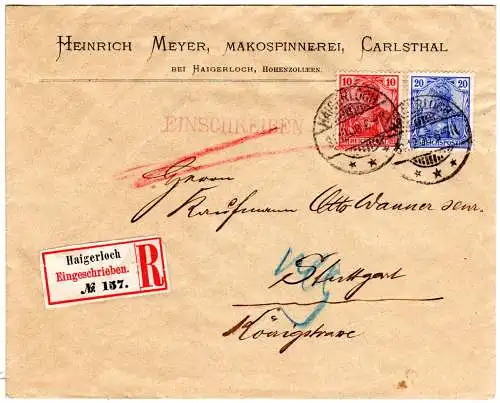 HEINRICH MEYER, MAKOSPINNEREI, CARLSTHAL
BEI HAIGERLOCH, HOHENZOLLERN.
10 10
20 20
REICHSPOST
HAIGERLOCH
EINSCHREIBEN
Herrn
Kaufmann Otto Wanner senr.
Haigerloch
Eingeschrieben.
№ 157.
R
Stuttgart
Königstrasse